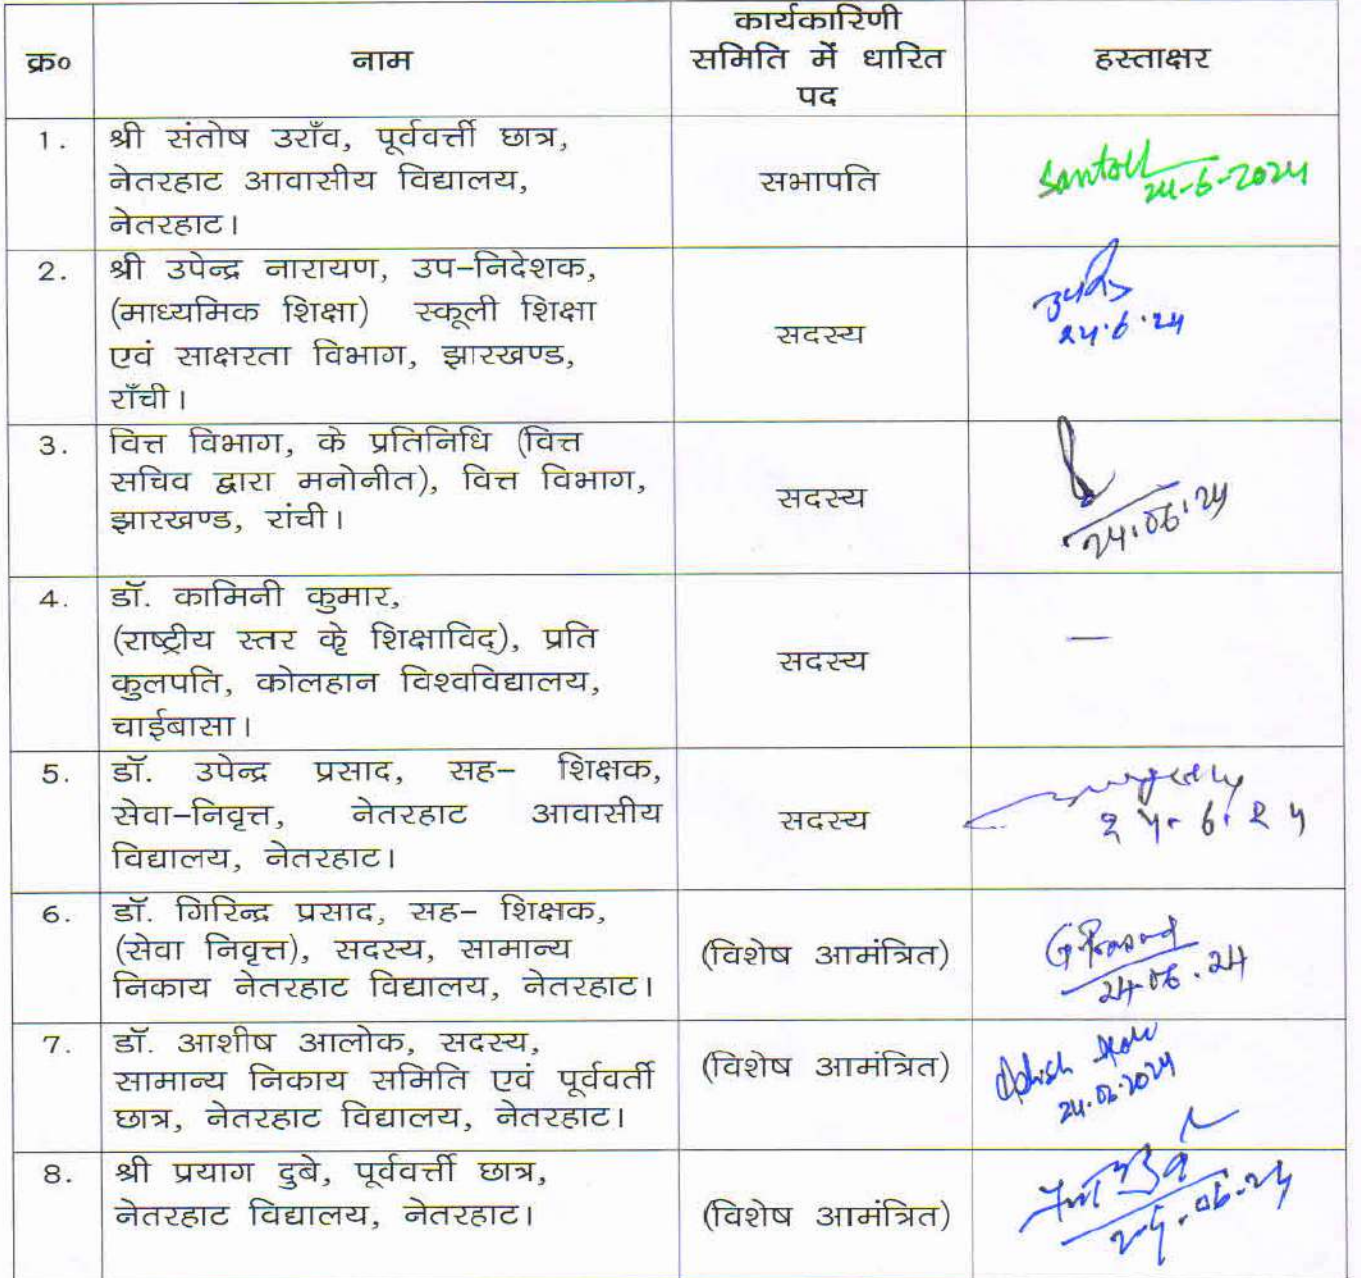 क्र० नाम कार्यकारिणी समिति में धारित पद हस्ताक्षर
1. श्री संतोष उराँव, पूर्ववर्त्ती छात्र,
नेतरहाट आवासीय विद्यालय,
नेतरहाट।
सभापति
Santosh
24-6-2024
2. श्री उपेन्द्र नारायण, उप-निदेशक,
(माध्यमिक शिक्षा) स्कूली शिक्षा
एवं साक्षरता विभाग, झारखण्ड,
राँची।
सदस्य
24.6.24
3. वित्त विभाग, के प्रतिनिधि (वित्त
सचिव द्वारा मनोनीत), वित्त विभाग,
झारखण्ड, रांची।
सदस्य
24.06.24
4. डॉ. कामिनी कुमार,
(राष्ट्रीय स्तर के शिक्षाविद्), प्रति
कुलपति, कोलहान विश्वविद्यालय,
चाईबासा।
सदस्य
—
5. डॉ. उपेन्द्र प्रसाद, सह- शिक्षक,
सेवा-निवृत्त, नेतरहाट आवासीय
विद्यालय, नेतरहाट।
सदस्य
24.6.24
6. डॉ. गिरिन्द्र प्रसाद, सह- शिक्षक,
(सेवा निवृत्त), सदस्य, सामान्य
निकाय नेतरहाट विद्यालय, नेतरहाट।
(विशेष आमंत्रित)
G Prasad
24.06.24
7. डॉ. आशीष आलोक, सदस्य,
सामान्य निकाय समिति एवं पूर्ववर्ती
छात्र, नेतरहाट विद्यालय, नेतरहाट।
(विशेष आमंत्रित)
Ashish
24.06.2024
8. श्री प्रयाग दुबे, पूर्ववर्त्ती छात्र,
नेतरहाट विद्यालय, नेतरहाट।
(विशेष आमंत्रित)
24.06.24